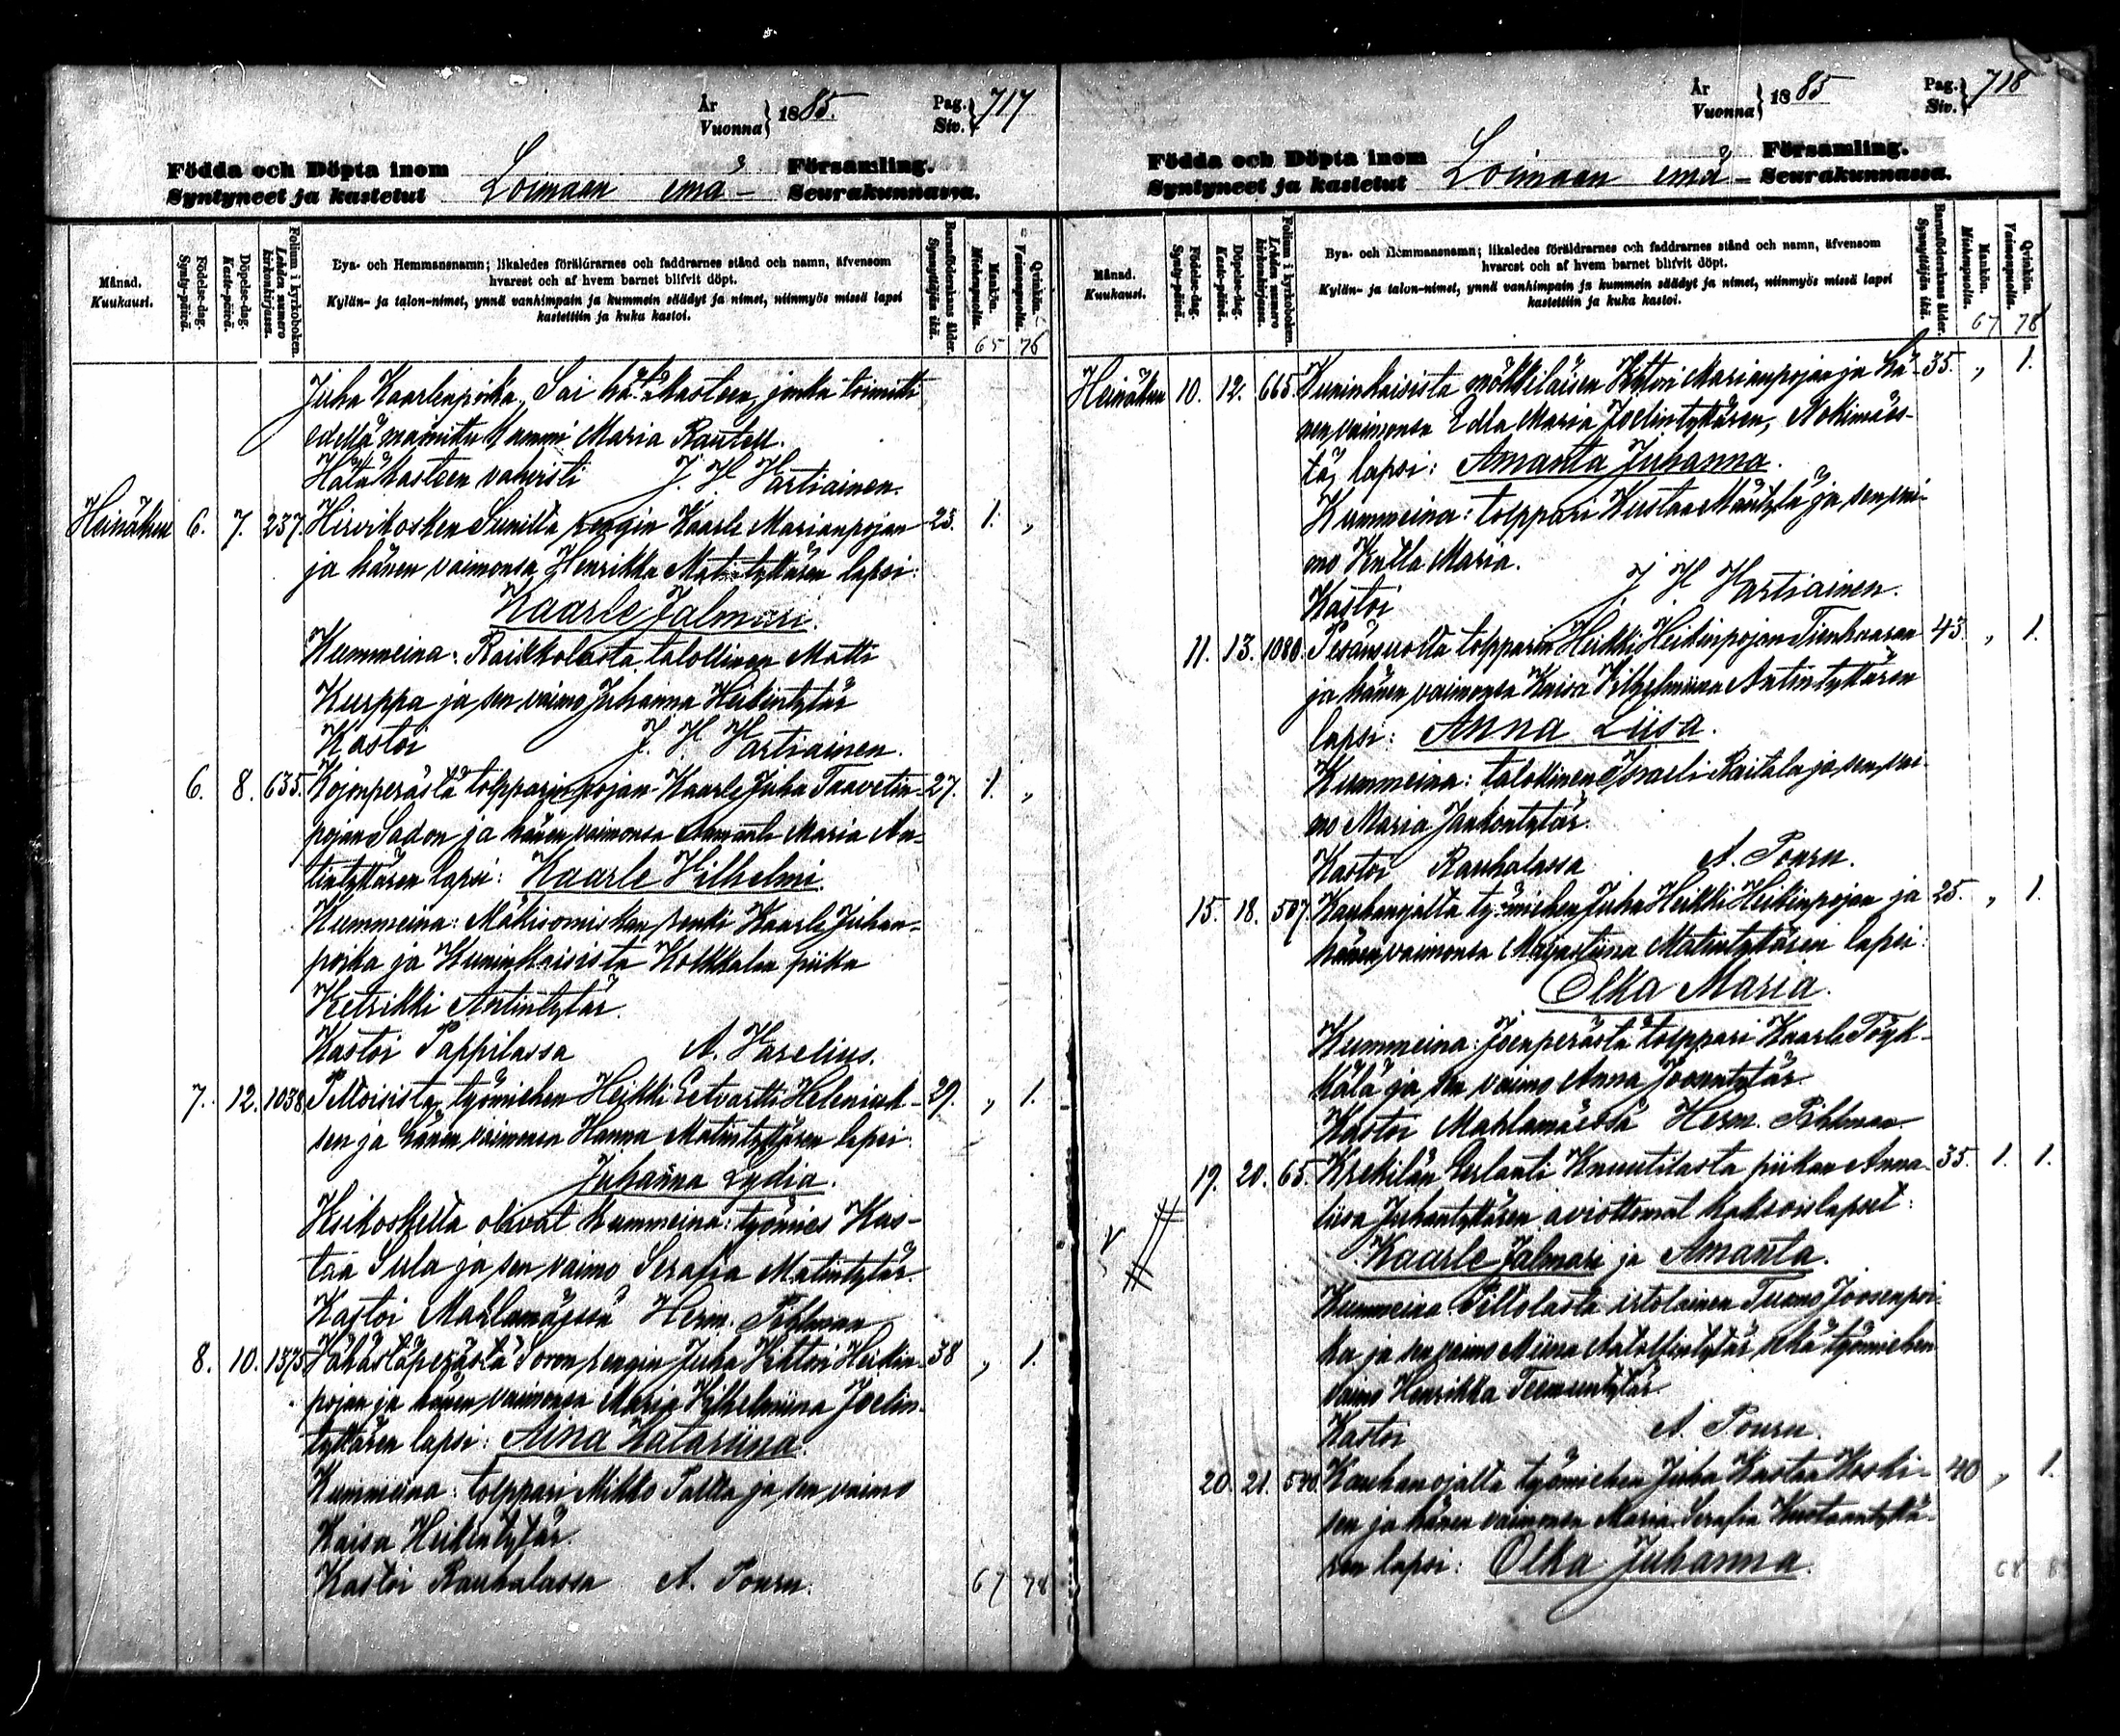 År
Vuonna } 1885.
Pag.
Siv. } 717
Födda och Döpta inom Församling.
Syntyneet ja kastetut Loimaan emä- Seurakunnassa.
Månad.
Kuukausi.
Födelse-dag.
Synty-päivä.
Döpelse-dag.
Kaste-päivä.
Folium i kyrkoboken.
Lehden numero kirkonkirjassa.
Bya- och Hemmansnamn; likaledes föräldrarnes och faddrarnes stånd och namn, äfvensom
hvarest och af hvem barnet blifvit döpt.
Kylän- ja talon-nimet, ynnä vanhimpain ja kummein säädyt ja nimet, niinmyös missä lapsi
kastettiin ja kuka kastoi.
Barnaföderskans ålder.
Synnyttäjän ikä.
Mankön.
Miehenpuolia.
Qvinkön.
Vaimonpuolia.
65 76
Juha Kaarlenpoika. Sai hätäkasteen, jonka toimitti
edellä mainittu kummi Maria Rautell.
Hätäkasteen vahvisti J. H. Hartiainen.
Heinäkuu 6. 7. 237. Hirvikosken Sunilla rengin Kaarle Marianpojan 25. 1. „
ja hänen vaimonsa Henrikka Matintyttären lapsi:
Kaarle Jalmari.
Kummeina: Raikkolasta talollinen Matti
Kurppa ja sen vaimo Juhanna Heikintytär
Kastoi J. H. Hartiainen.
6. 8. 635. Kojonperästä tolpparin pojan Kaarle Juha Taavetin- 27. 1. „
pojan Sadon ja hänen vaimonsa Amanta Maria An-
tintyttären lapsi: Kaarle Vilhelmi.
Kummeina: Mäkisomiskan renki Kaarle Juhan-
poika ja Kuninkaisista Kokkalan piika
Ketrikki Antintytär.
Kastoi Pappilassa A. Harelius.
7. 12. 1038. Peltoisista työmiehen Heikki Eetvartti Heleniuk- 29. „ 1.
sen ja hänen vaimonsa Hanna Matintyttären lapsi
Juhanna Lydia.
Hsikoskelta olivat kummeina: työmies Kus-
taa Sula ja sen vaimo Serafia Matintytär.
Kastoi Mahlamäessä Herm. Pihlman
8. 10. 1375. Vähästäperästä Soron rengin Juha Vihtori Heikin- 38 „ 1.
pojan ja hänen vaimonsa Maria Vilhelmiina Joelin-
tyttären lapsi: Aina Katariina.
Kummeina: tolppari Mikko Palkka ja sen vaimo
Kaisa Heikintytär.
Kastoi Rauhalassa A. Pouru.
67 78
År
Vuonna } 1885
Pag.
Siv. } 718
Födda och Döpta inom Församling.
Syntyneet ja kastetut Loimaan emä- Seurakunnassa.
Månad.
Kuukausi.
Födelse-dag.
Synty-päivä.
Döpelse-dag.
Kaste-päivä.
Folium i kyrkoboken.
Lehden numero kirkonkirjassa.
Bya- och Hemmansnamn; likaledes föräldrarnes och faddrarnes stånd och namn, äfvensom
hvarest och af hvem barnet blifvit döpt.
Kylän- ja talon-nimet, ynnä vanhimpain ja kummein säädyt ja nimet, niinmyös missä lapsi
kastettiin ja kuka kastoi.
Barnaföderskans ålder.
Synnyttäjän ikä.
Mankön.
Miehenpuolia.
Qvinkön.
Vaimonpuolia.
67 78
Heinäkuu 10. 12. 665. Kuninkaisista mökkiläisen Vihtori Marianpojan ja hä- 35. „ 1.
nen vaimonsa Edla Maria Joelintyttären, Nokimäes-
tä, lapsi: Amanta Juhanna.
Kummeina: tolppari Kustaa Mäntylä ja sen vai-
mo Kulla Maria.
Kastoi J. H. Hartiainen.
11. 13. 1080. Pesänsuolta tolpparin Heikki Heikinpojan Tienhaaran 43. „ 1.
ja hänen vaimonsa Kaisa Vilhelmiina Antintyttären
lapsi: Anna Liisa.
Kummeina: talollinen Israeli Raitala ja sen vai-
mo Maria Jaakontytär.
Kastoi Rauhalassa A. Pouru.
15. 18. 507. Kauhanojalta työmiehen Juha Heikki Heikinpojan ja 25. „ 1.
hänen vaimonsa Marjastiina Matintyttären lapsi:
Olka Maria.
Kummeina: Joenperästä tolppari Kaarle Töyk-
kälä ja sen vaimo Anna Joosentytär.
Kastoi Mahlamäessä Herm. Pihlman
19. 20. 65. Krekilän Perlanti Knuutilasta piikan Anna- 35. 1. 1.
liisa Juhantyttären aviottomat kaksoislapset:
Kaarle Jalmari ja Amanta.
Kummeina Peltolasta irtolainen Tuomo Joosenpoi-
ka ja sen vaimo Miina Aatolfintytär sekä työmiehen
vaimo Henrikka Teemuntytär
Kastoi A. Pouru.
20. 21. 540. Kauhanojalta työmiehen Juha Kustaa Koski- 40 „ 1.
sen ja hänen vaimonsa Maria Serafia Kustaantyttä-
ren lapsi: Olka Juhanna.
68